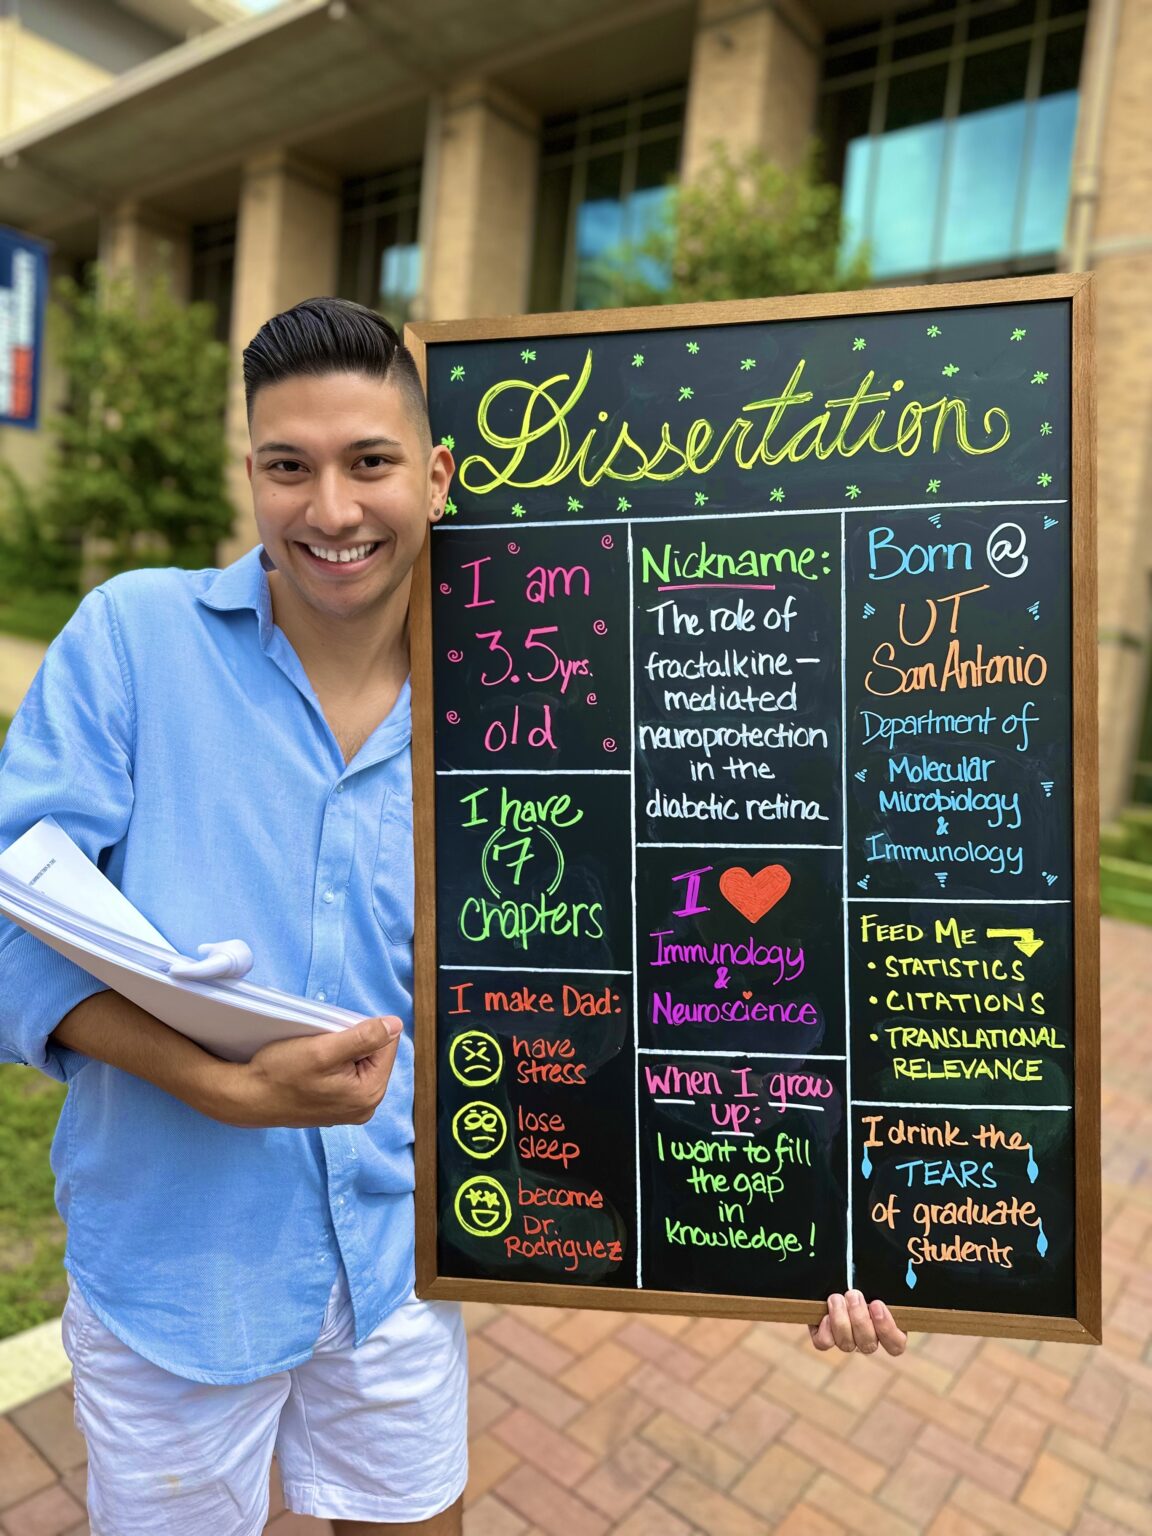 Dissertation
I am
3.5yrs.
old
I have
7
Chapters
I make Dad:
have
stress
lose
sleep
become
Dr.
Rodriguez
Nickname:
The role of
fractalkine-
mediated
neuroprotection
in the
diabetic retina
I ❤
Immunology
&
Neuroscience
When I grow
up:
I want to fill
the gap
in
knowledge!
Born @
UT
San Antonio
Department of
Molecular
Microbiology
&
Immunology
FEED ME
• STATISTICS
• CITATIONS
• TRANSLATIONAL
RELEVANCE
I drink the
TEARS
of graduate
students